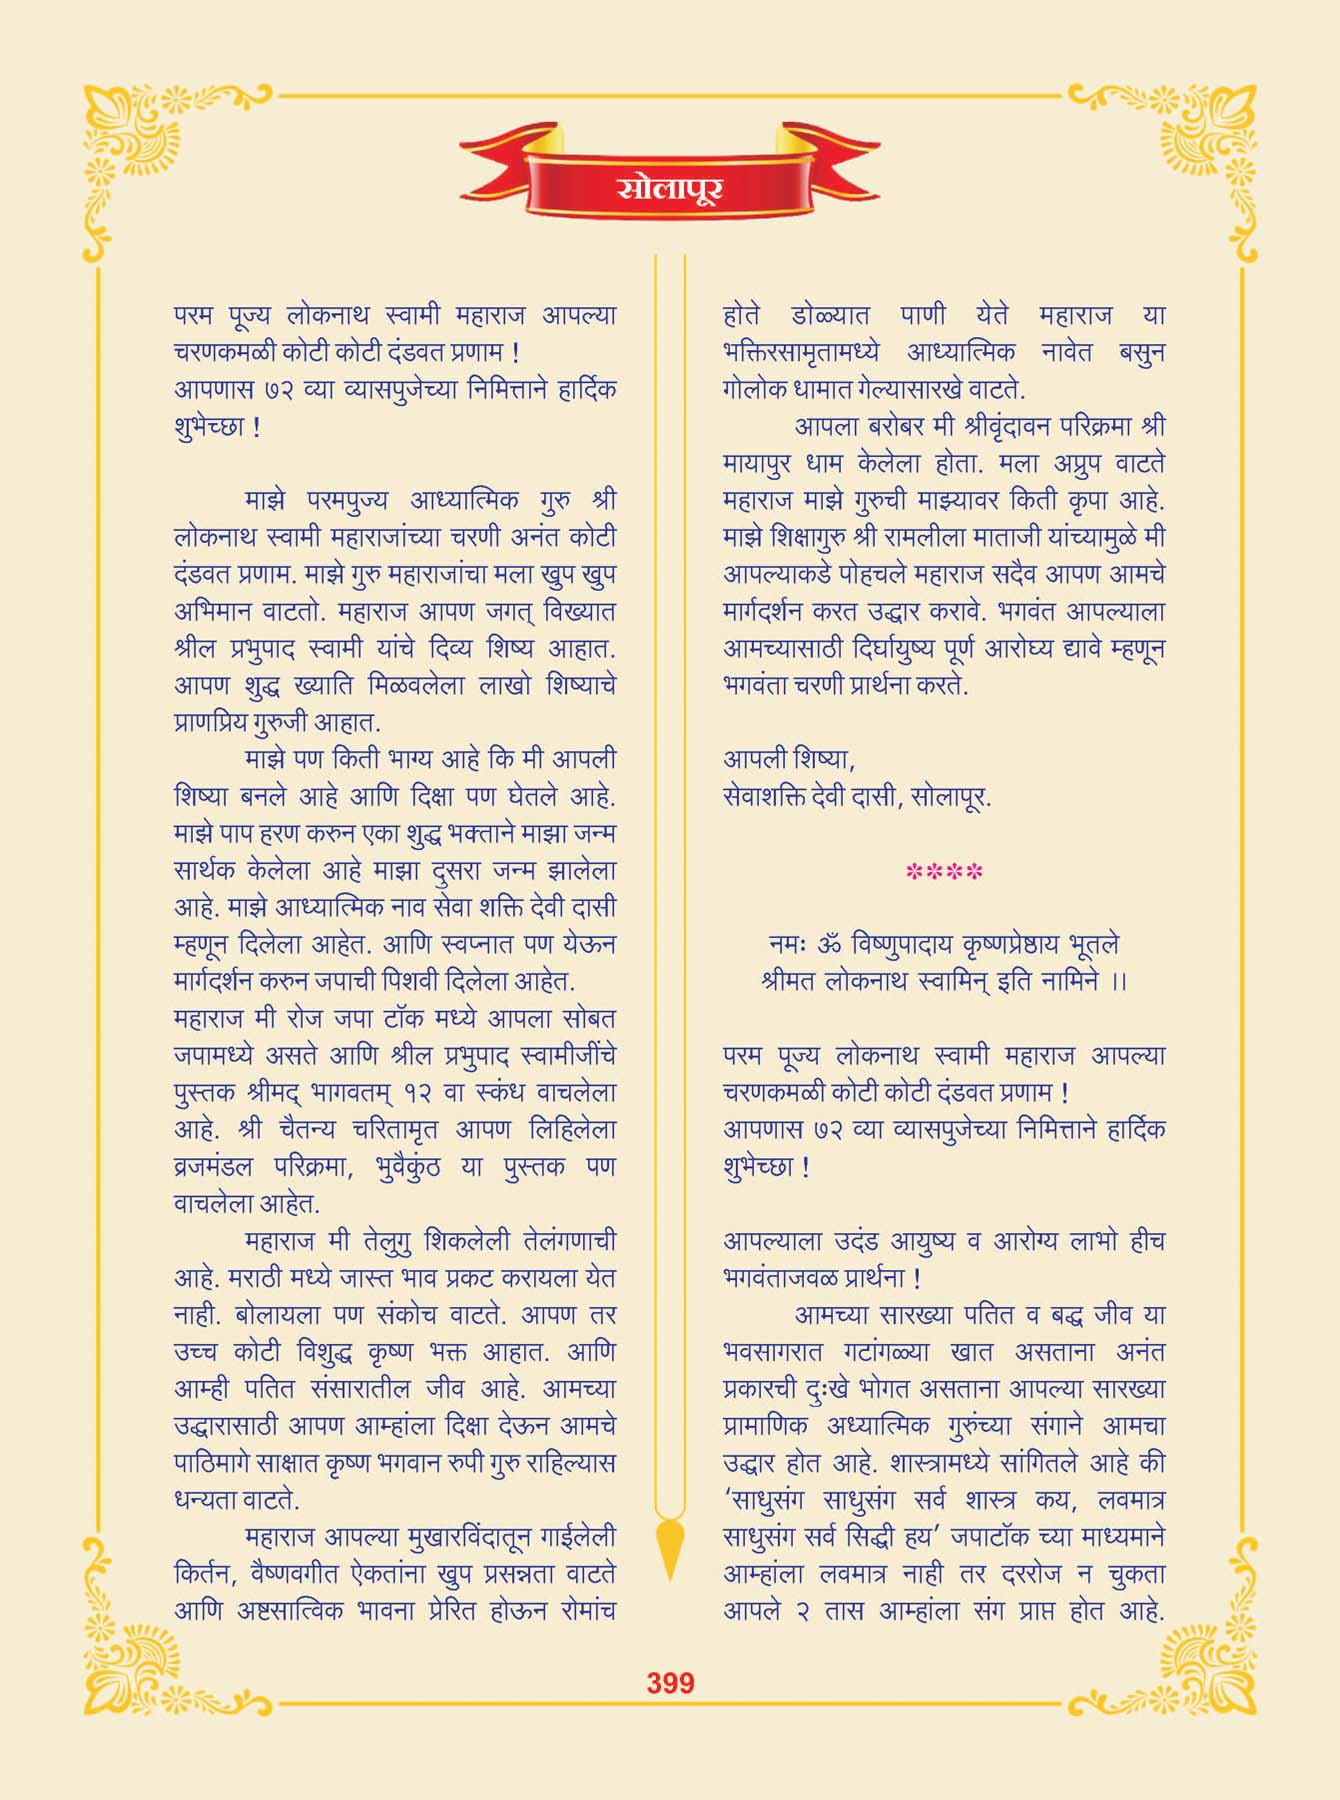 सोलापूर
परम पूज्य लोकनाथ स्वामी महाराज आपल्या
चरणकमळी कोटी कोटी दंडवत प्रणाम !
आपणास ७२ व्या व्यासपुजेच्या निमित्ताने हार्दिक
शुभेच्छा !
माझे परमपुज्य आध्यात्मिक गुरु श्री
लोकनाथ स्वामी महाराजांच्या चरणी अनंत कोटी
दंडवत प्रणाम. माझे गुरु महाराजांचा मला खुप खुप
अभिमान वाटतो. महाराज आपण जगत् विख्यात
श्रील प्रभुपाद स्वामी यांचे दिव्य शिष्य आहात.
आपण शुद्ध ख्याति मिळवलेला लाखो शिष्याचे
प्राणप्रिय गुरुजी आहात.
माझे पण किती भाग्य आहे कि मी आपली
शिष्या बनले आहे आणि दिक्षा पण घेतले आहे.
माझे पाप हरण करुन एका शुद्ध भक्ताने माझा जन्म
सार्थक केलेला आहे माझा दुसरा जन्म झालेला
आहे. माझे आध्यात्मिक नाव सेवा शक्ति देवी दासी
म्हणून दिलेला आहेत. आणि स्वप्नात पण येऊन
मार्गदर्शन करुन जपाची पिशवी दिलेला आहेत.
महाराज मी रोज जपा टॉक मध्ये आपला सोबत
जपामध्ये असते आणि श्रील प्रभुपाद स्वामीजींचे
पुस्तक श्रीमद् भागवतम् १२ वा स्कंध वाचलेला
आहे. श्री चैतन्य चरितामृत आपण लिहिलेला
व्रजमंडल परिक्रमा, भुवैकुंठ या पुस्तक पण
वाचलेला आहेत.
महाराज मी तेलुगु शिकलेली तेलंगणाची
आहे. मराठी मध्ये जास्त भाव प्रकट करायला येत
नाही. बोलायला पण संकोच वाटते. आपण तर
उच्च कोटी विशुद्ध कृष्ण भक्त आहात. आणि
आम्ही पतित संसारातील जीव आहे. आमच्या
उद्धारासाठी आपण आम्हांला दिक्षा देऊन आमचे
पाठिमागे साक्षात कृष्ण भगवान रुपी गुरु राहिल्यास
धन्यता वाटते.
महाराज आपल्या मुखारविंदातून गाईलेली
किर्तन, वैष्णवगीत ऐकतांना खुप प्रसन्नता वाटते
आणि अष्टसात्विक भावना प्रेरित होऊन रोमांच
होते डोळ्यात पाणी येते महाराज या
भक्तिरसामृतामध्ये आध्यात्मिक नावेत बसुन
गोलोक धामात गेल्यासारखे वाटते.
आपला बरोबर मी श्रीवृंदावन परिक्रमा श्री
मायापुर धाम केलेला होता. मला अप्रुप वाटते
महाराज माझे गुरुची माझ्यावर किती कृपा आहे.
माझे शिक्षागुरु श्री रामलीला माताजी यांच्यामुळे मी
आपल्याकडे पोहचले महाराज सदैव आपण आमचे
मार्गदर्शन करत उद्धार करावे. भगवंत आपल्याला
आमच्यासाठी दिर्घायुष्य पूर्ण आरोघ्य द्यावे म्हणून
भगवंता चरणी प्रार्थना करते.
आपली शिष्या,
सेवाशक्ति देवी दासी, सोलापूर.
****
नमः ॐ विष्णुपादाय कृष्णप्रेष्ठाय भूतले
श्रीमत लोकनाथ स्वामिन् इति नामिने ।।
परम पूज्य लोकनाथ स्वामी महाराज आपल्या
चरणकमळी कोटी कोटी दंडवत प्रणाम !
आपणास ७२ व्या व्यासपुजेच्या निमित्ताने हार्दिक
शुभेच्छा !
आपल्याला उदंड आयुष्य व आरोग्य लाभो हीच
भगवंताजवळ प्रार्थना !
आमच्या सारख्या पतित व बद्ध जीव या
भवसागरात गटांगळ्या खात असताना अनंत
प्रकारची दुःखे भोगत असताना आपल्या सारख्या
प्रामाणिक अध्यात्मिक गुरुंच्या संगाने आमचा
उद्धार होत आहे. शास्त्रामध्ये सांगितले आहे की
‘साधुसंग साधुसंग सर्व शास्त्र कय, लवमात्र
साधुसंग सर्व सिद्धी हय’ जपाटॉक च्या माध्यमाने
आम्हांला लवमात्र नाही तर दररोज न चुकता
आपले २ तास आम्हांला संग प्राप्त होत आहे.
399